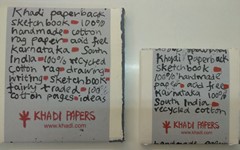 Khadi paperback
sketchbook 100%
handmade cotton
rag paper acid free
Karnataka South
India 100% recycled
cotton rag drawing
writing sketchbook
fairly traded 100%
cotton pages ideas
KHADI PAPERS
www.khadi.com
Khadi paperback
sketchbook
100% handmade
paper acid free
Karnataka 100%
South India
recycled cotton
KHADI PAPERS
www.khadi.com